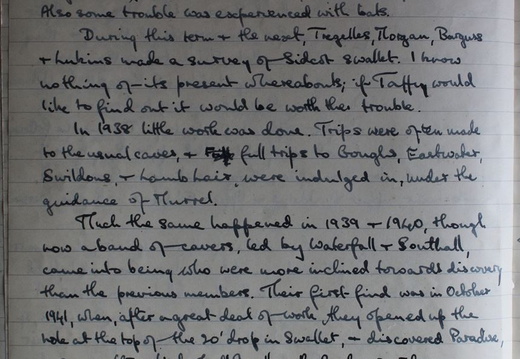 Also some trouble was experienced with bats.
During this term + the next, Tregelles, Morgan, Burgess
+ Lukins made a survey of Sidcot swallet. I know
nothing of its present whereabouts; if Taffy would
like to find out it would be worth the trouble.
In 1938 little work was done. Trips were often made
to the usual caves, + full trips to Goughs, Eastwater,
Swildons, + Lamb Lair, were indulged in, under the
guidance of Murrel.
Much the same happened in 1939 + 1940, though
now a band of cavers, led by Waterfall + Southall,
came into being who were more inclined towards discovery
than the previous members. Their first find was in October
1941, when, after a great deal of work, they opened up the
hole at the top of the 20' drop in Swallet, + discovered Paradise,